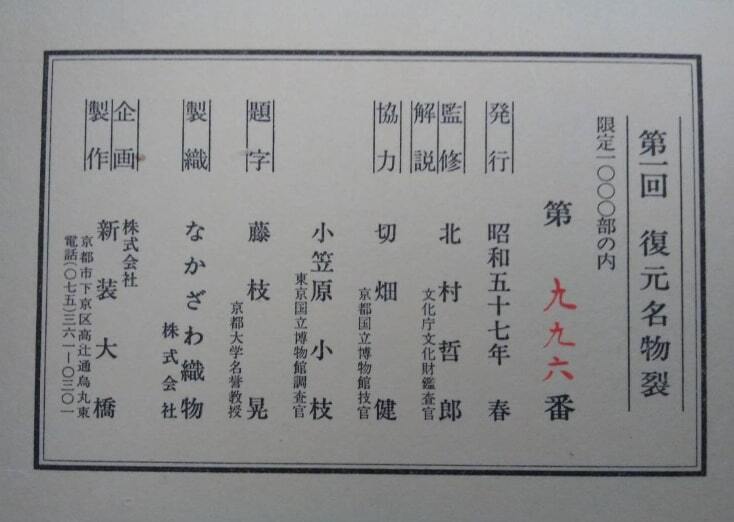 第一回 復元名物裂
限定一〇〇〇部の内
第 九九六 番
発行 昭和五十七年 春
監修 解説 北村哲郎
文化庁文化財鑑査官
協力 切畑 健
京都国立博物館技官
小笠原小枝
東京国立博物館調査官
題字 藤枝 晃
京都大学名誉教授
製織 なかざわ織物
株式会社
企画 製作 株式会社
新装大橋
京都市下京区高辻通烏丸東
電話(〇七五)三六一ー〇三〇一